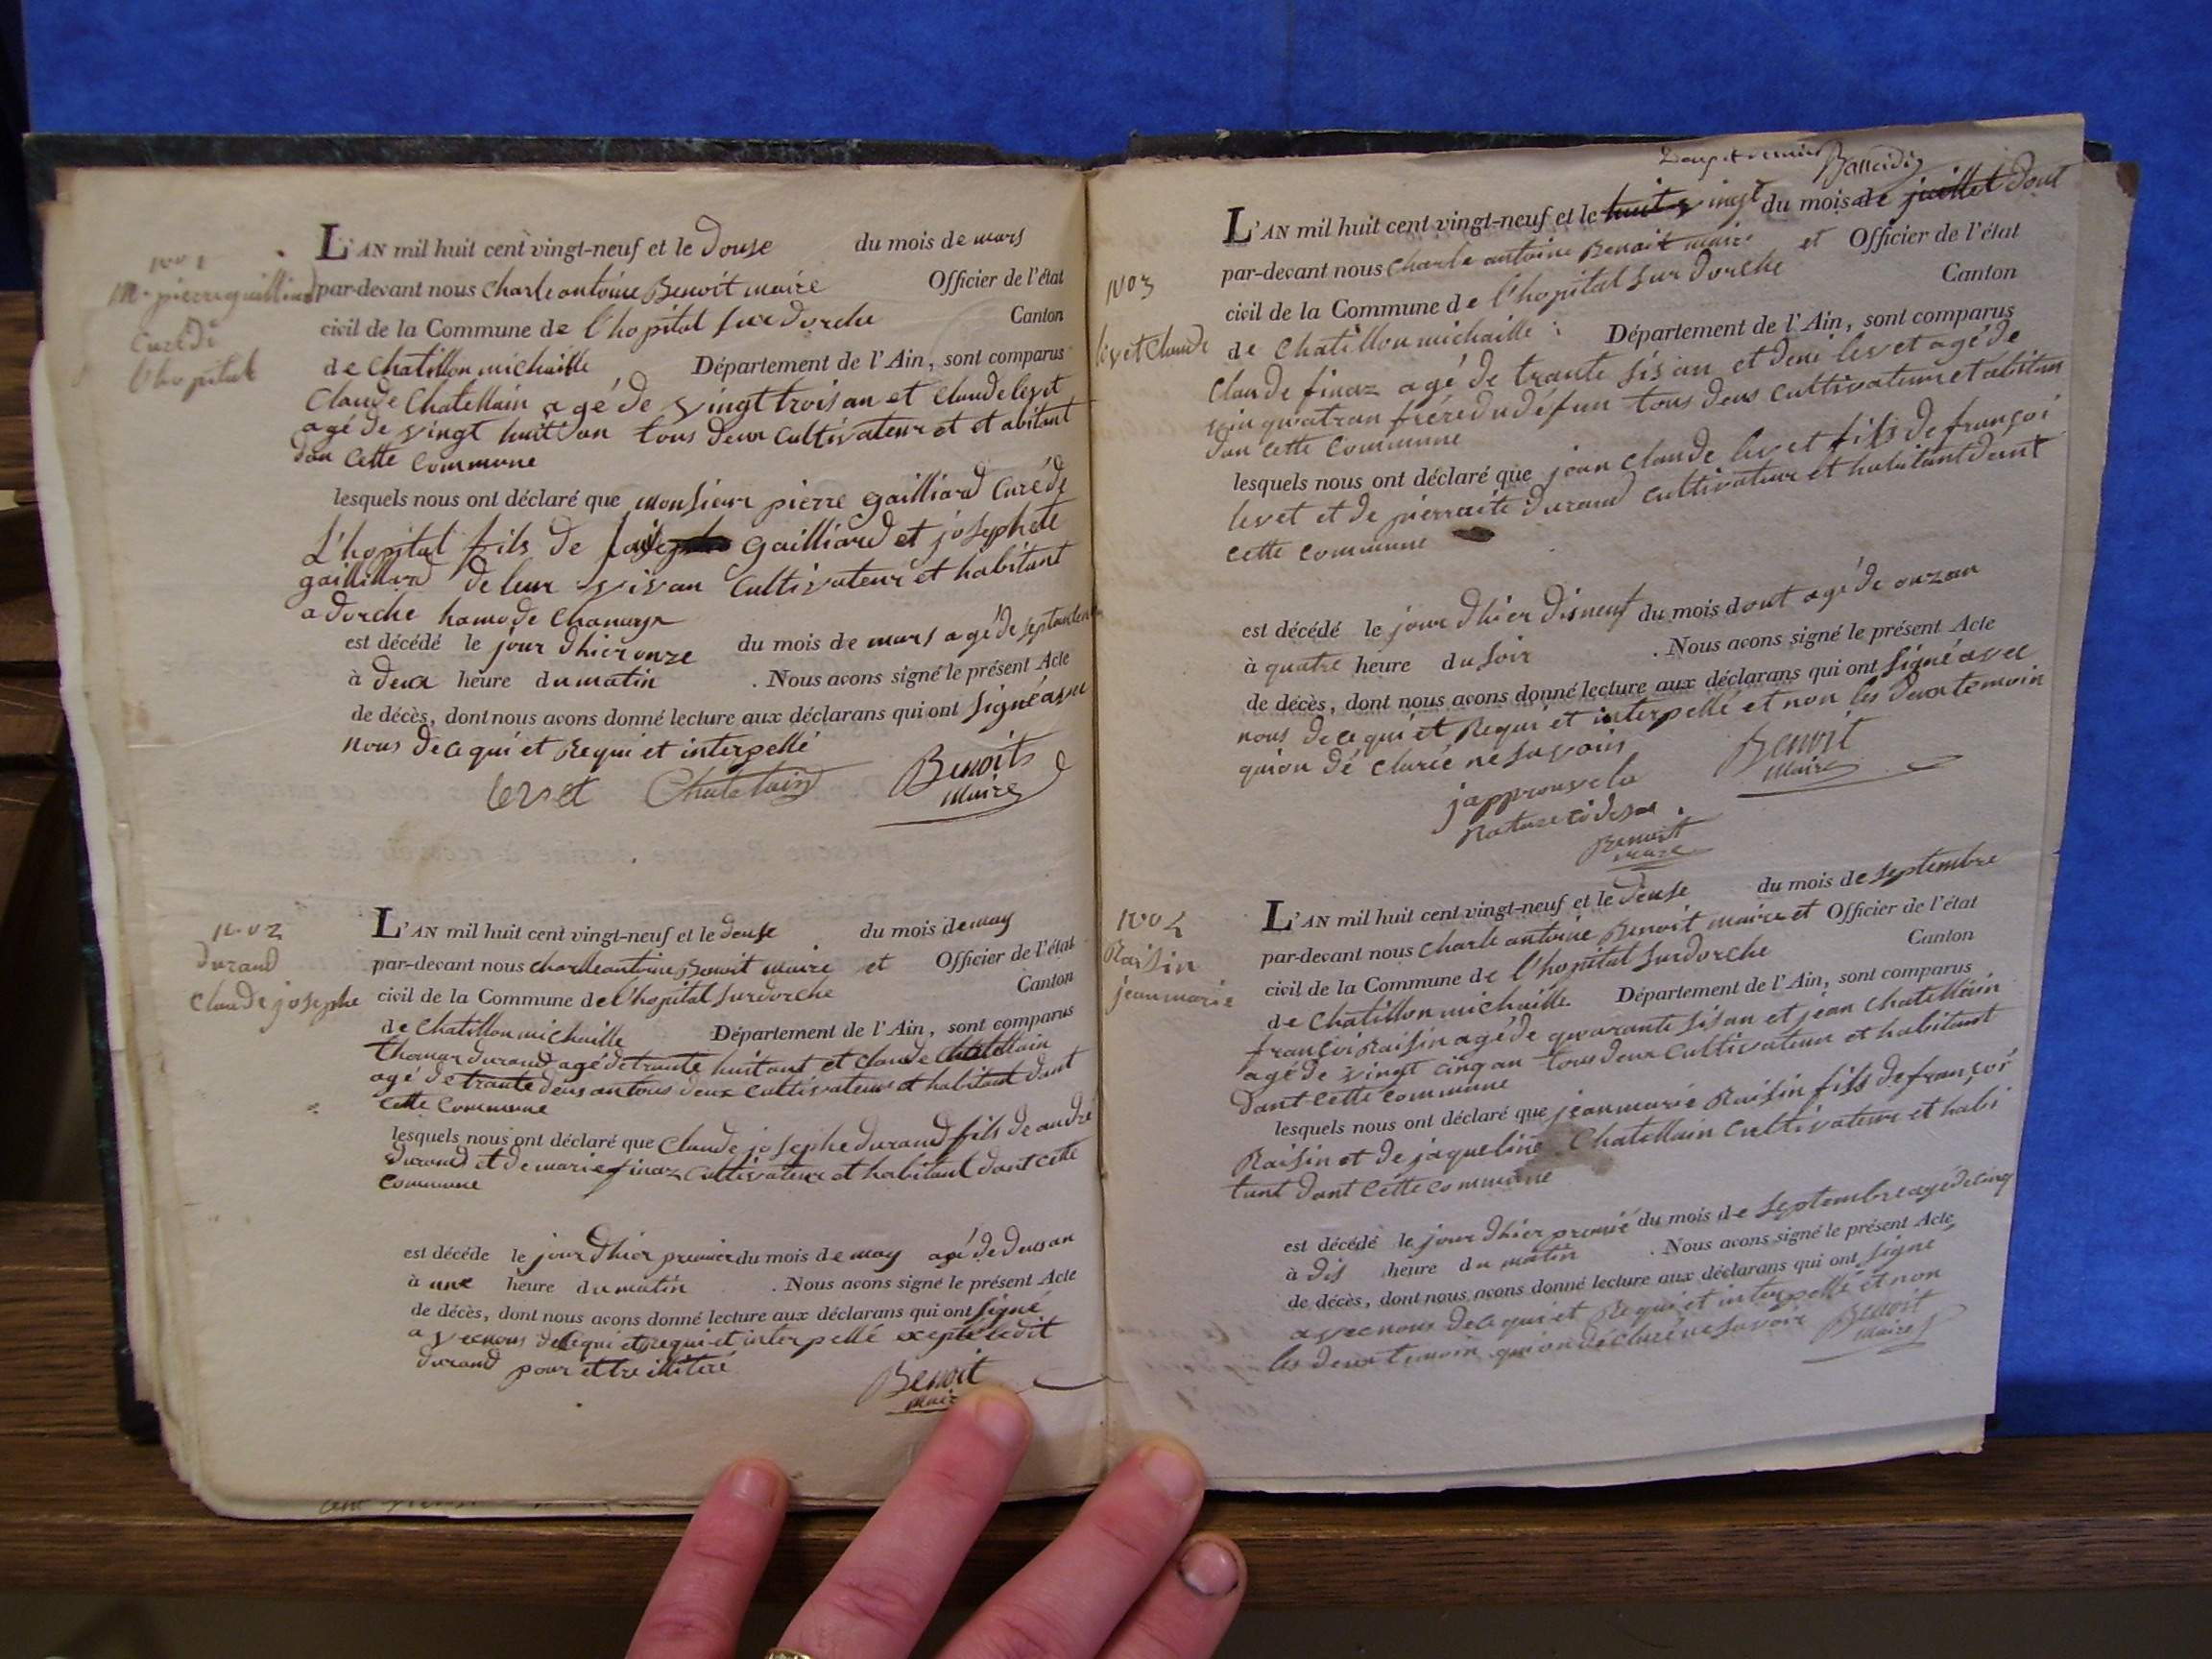 No 1
Mr pierre gailliard
Curé de
l'hopital
L'AN mil huit cent vingt-neuf et le douse du mois de mars
par-devant nous Charle antoine Benoit maire Officier de l'état
civil de la Commune de l'hopital sur dorche Canton
de Chatillon michaille Département de l'Ain, sont comparus
Claude Chatellain agé de vingt trois an et Claude levet
agé de vingt huit an tous deux cultivateur et et abitant
dan cette commune
lesquels nous ont déclaré que monsieur pierre gailliard Curé de
L'hopital fils de gailliard et josephete
gaillillard de leur vivan Cultivateur et habitant
a dorche hamo de Chanay
est décédé le jour dhier onze du mois de mars agé de
à deux heure du matin . Nous avons signé le présent Acte
de décès, dont nous avons donné lecture aux déclarans qui ont signé avec
nous de ce qui et Requi et interpellé
levet Chatelain Benoit
maire
No 2
durand
Claude josephe
L'AN mil huit cent vingt-neuf et le deuse du mois de may
par-devant nous charle antoine Benoit maire et Officier de l'état
civil de la Commune de l'hopital sur dorche Canton
de Chatillon michaille Département de l'Ain, sont comparus
thomas durand agé de trante huit ant et Claude Chatellain
agé de trante deus an tous deux cultivateur et habitant dant
cette commune
lesquels nous ont déclaré que Claude josephe durand fils de andré
durand et de marie finaz cultivateur et habitant dant cette
commune
est décédé le jour dhier premier du mois de may agé de deus an
à une heure du matin . Nous avons signé le présent Acte
de décès, dont nous avons donné lecture aux déclarans qui ont signé
avec nous de ce qui et requi et interpellé exepté ledit
durand pour ettre illiteré
Benoit
maire
L'AN mil huit cent vingt-neuf et le huit vingt du mois de juillet dout
No 3
levet Claude
par-devant nous Charle antoine Benoit maire et Officier de l'état
civil de la Commune de l'hopital sur dorche Canton
de Chatillon michaille Département de l'Ain, sont comparus
Claude finaz agé de trante sis an et deni levet agé de
vin quatr an frére du défun tous deus cultivateur et abitan
dan cette commune
lesquels nous ont déclaré que jean Claude levet fils de françoi
levet et de pierraite durand cultivateur et habitant dant
cette commune
est décédé le jour dhier disneuf du mois dout agé de onz an
à quatre heure du soir . Nous avons signé le présent Acte
de décès, dont nous avons donné lecture aux déclarans qui ont signé avec
nous de ce qui et Requi et interpellé et non les deux temoin
qui on dé claré ne savoir
Benoit
Maire
japprouve la
Rature ci desu
Benoit
maire
No 4
Raisin
jean marie
L'AN mil huit cent vingt-neuf et le deuse du mois de septembre
par-devant nous Charle antoine Benoit maire et Officier de l'état
civil de la Commune de l'hopital sur dorche Canton
de Chatillon michaille Département de l'Ain, sont comparus
françoi Raisin agé de quarante sis an et jean Chatellain
agé de vingt cinq an tous deux cultivateur et habitant
dant cette commune
lesquels nous ont déclaré que jean marie Raisin fils de françoi
Raisin et de jaqueline Chatellain cultivateur et habi
tant dant cette commune
est décédé le jour dhier premié du mois de septembre agé de cinq
à dis heure du matin . Nous avons signé le présent Acte
de décès, dont nous avons donné lecture aux déclarans qui ont signé
avec nous de ce qui et Requi et interpellé et non
les deux temoin qui on déclaré ne savoir Benoit
Maire